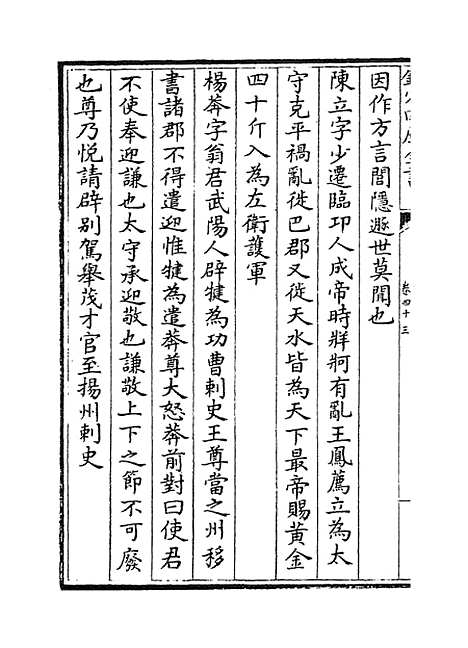 欽定四庫全書
卷四十三
因作方言閭隱遯世莫聞也
陳立字少遷臨卭人成帝時牂牁有亂王鳳薦立為太
守克平禍亂徙巴郡又徙天水皆為天下最帝賜黄金
四十斤入為左衛護軍
楊莽字翁君武陽人辟犍為功曹刺史王尊當之州移
書諸郡不得遣迎惟犍為遣莽尊大怒莽前對曰使君
不使奉迎謙也太守承迎敬也謙敬上下之節不可廢
也尊乃悦請辟别駕舉茂才官至揚州刺史